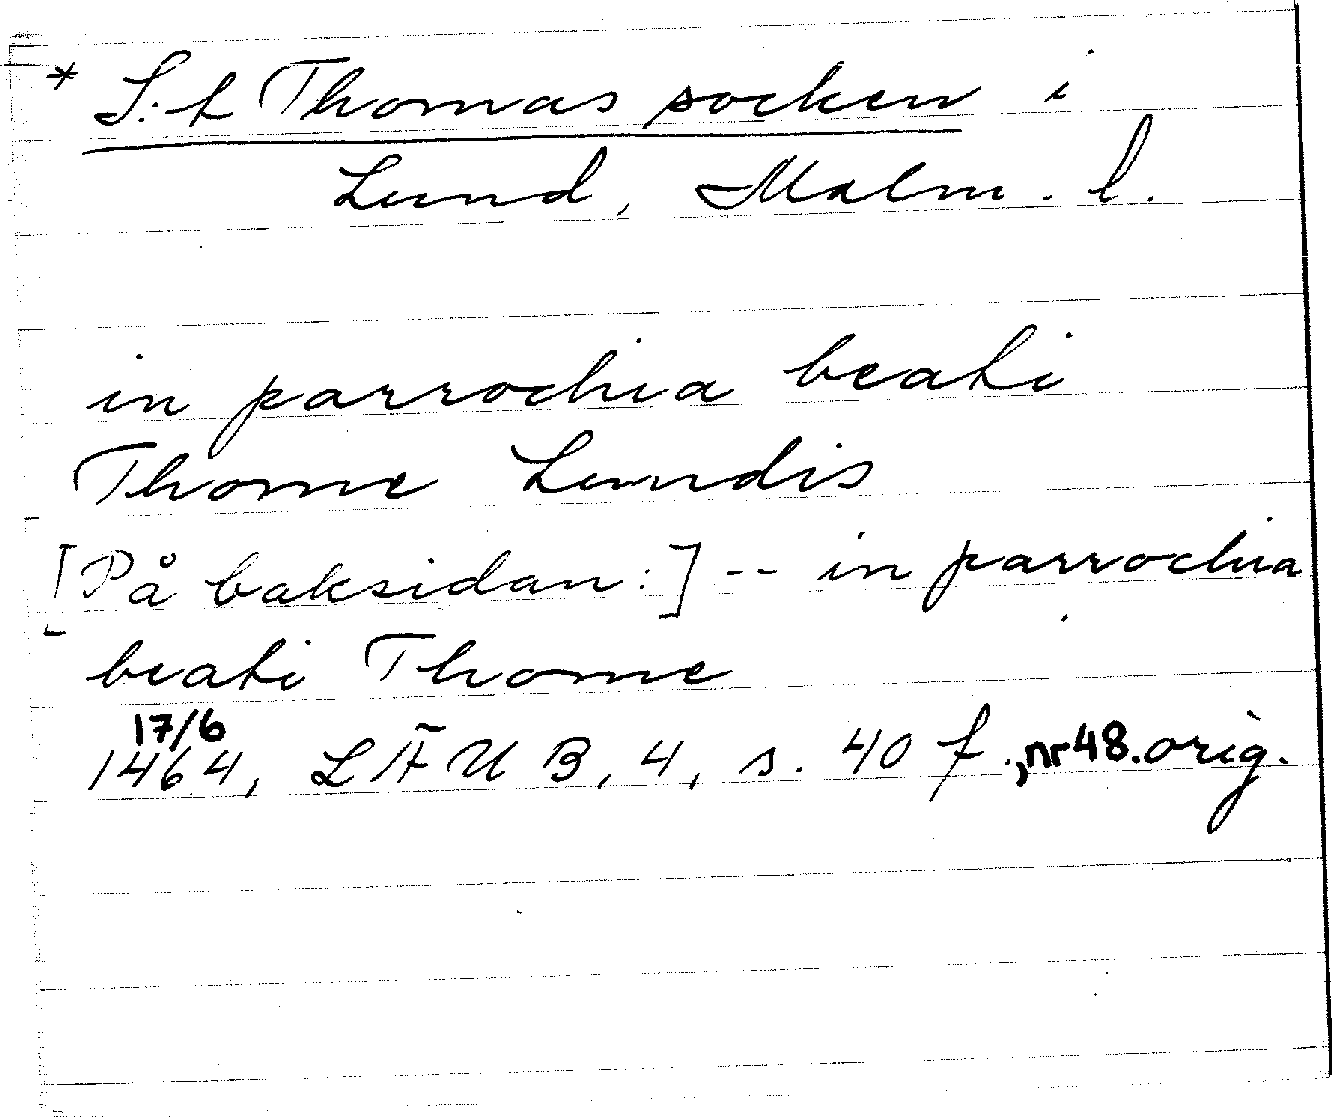 * S:t Thomas socken i
Lund, Malm. l.
in parrochia beati
Thome Lundis
[På baksidan:] -- in parrochia
beati Thome
17/6
1464, LÄUB, 4, s. 40 f., nr 48. orig.